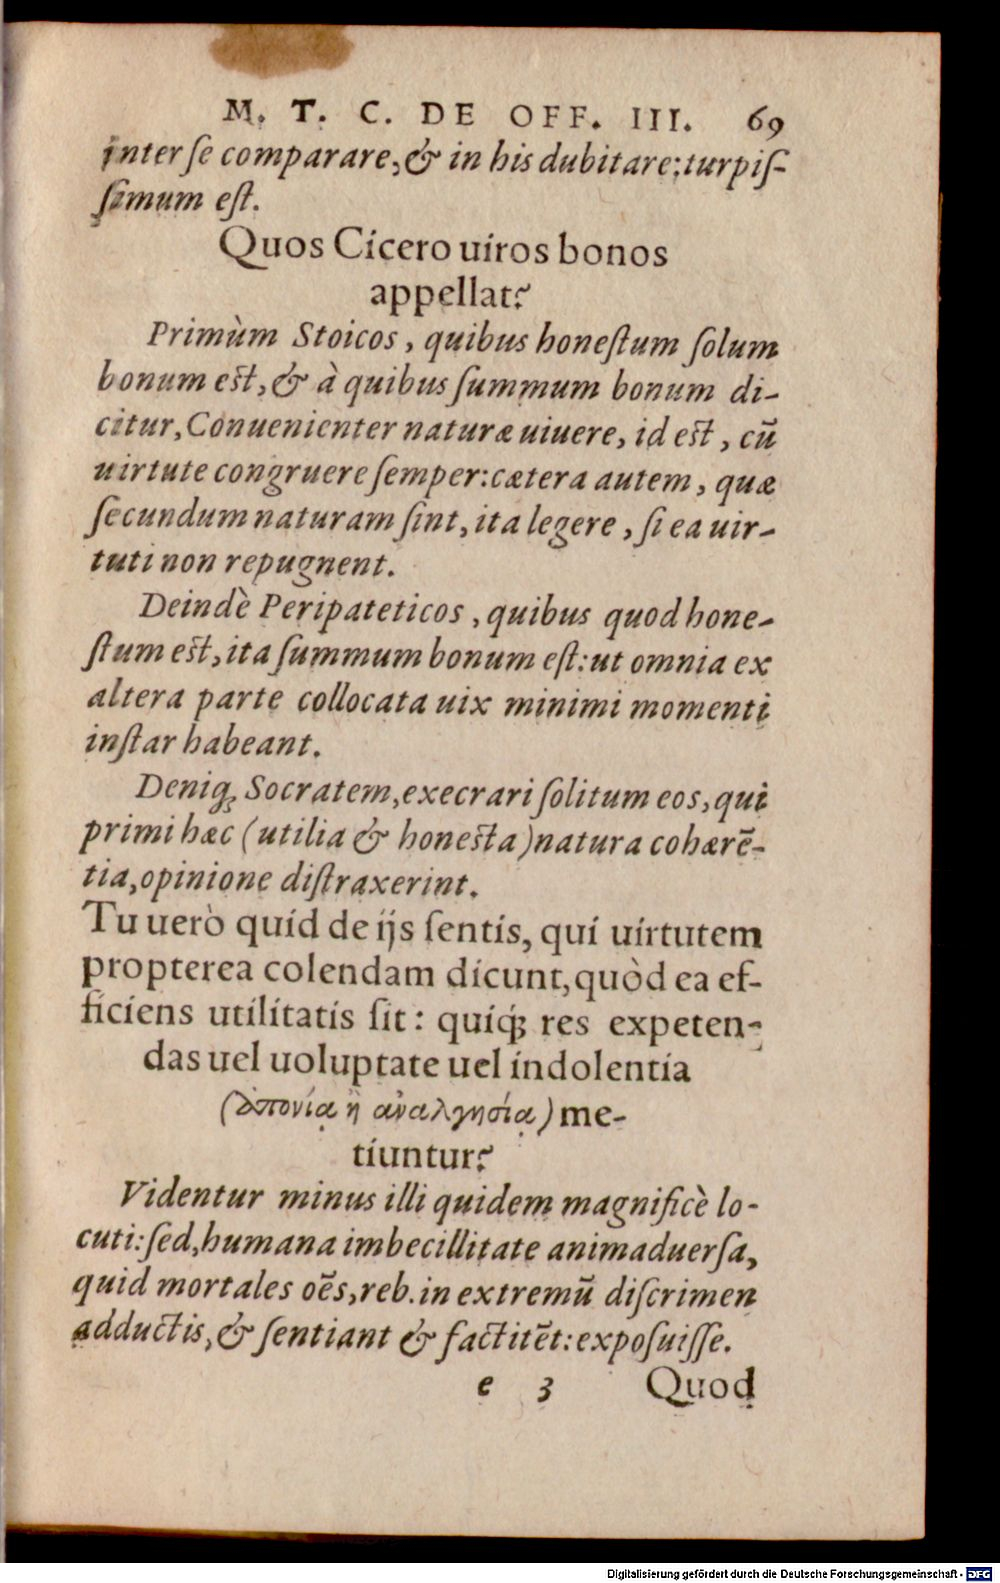 M. T. C. DE OFF. III. 69
inter ſe comparare, & in his dubitare: turpiſ-
ſimum eſt.
Quos Cicero uiros bonos
appellat?
Primùm Stoicos, quibus honeſtum ſolum
bonum eſt, & à quibus ſummum bonum di-
citur, Conuenienter naturæ uiuere, id eſt, cū
uirtute congruere ſemper: cætera autem, quæ
ſecundum naturam ſint, ita legere, ſi ea uir-
tuti non repugnent.
Deindè Peripateticos, quibus quod hone-
ſtum eſt, ita ſummum bonum eſt: ut omnia ex
altera parte collocata uix minimi momenti
inſtar habeant.
Deniq; Socratem, execrari ſolitum eos, qui
primi hæc (utilia & honeſta) natura cohærē-
tia, opinione diſtraxerint.
Tu uerò quid de ijs ſentis, qui uirtutem
propterea colendam dicunt, quòd ea ef-
ficiens utilitatis ſit: quiq; res expeten-
das uel uoluptate uel indolentia
(ἀπονίᾳ ἢ ἀναλγησίᾳ) me-
tiuntur?
Videntur minus illi quidem magnificè lo-
cuti: ſed, humana imbecillitate animaduerſa,
quid mortales oēs, reb. in extremū diſcrimen
adductis, & ſentiant & factitēt: expoſuiſſe.
e 3 Quod
Digitalisierung gefördert durch die Deutsche Forschungsgemeinschaft - DFG